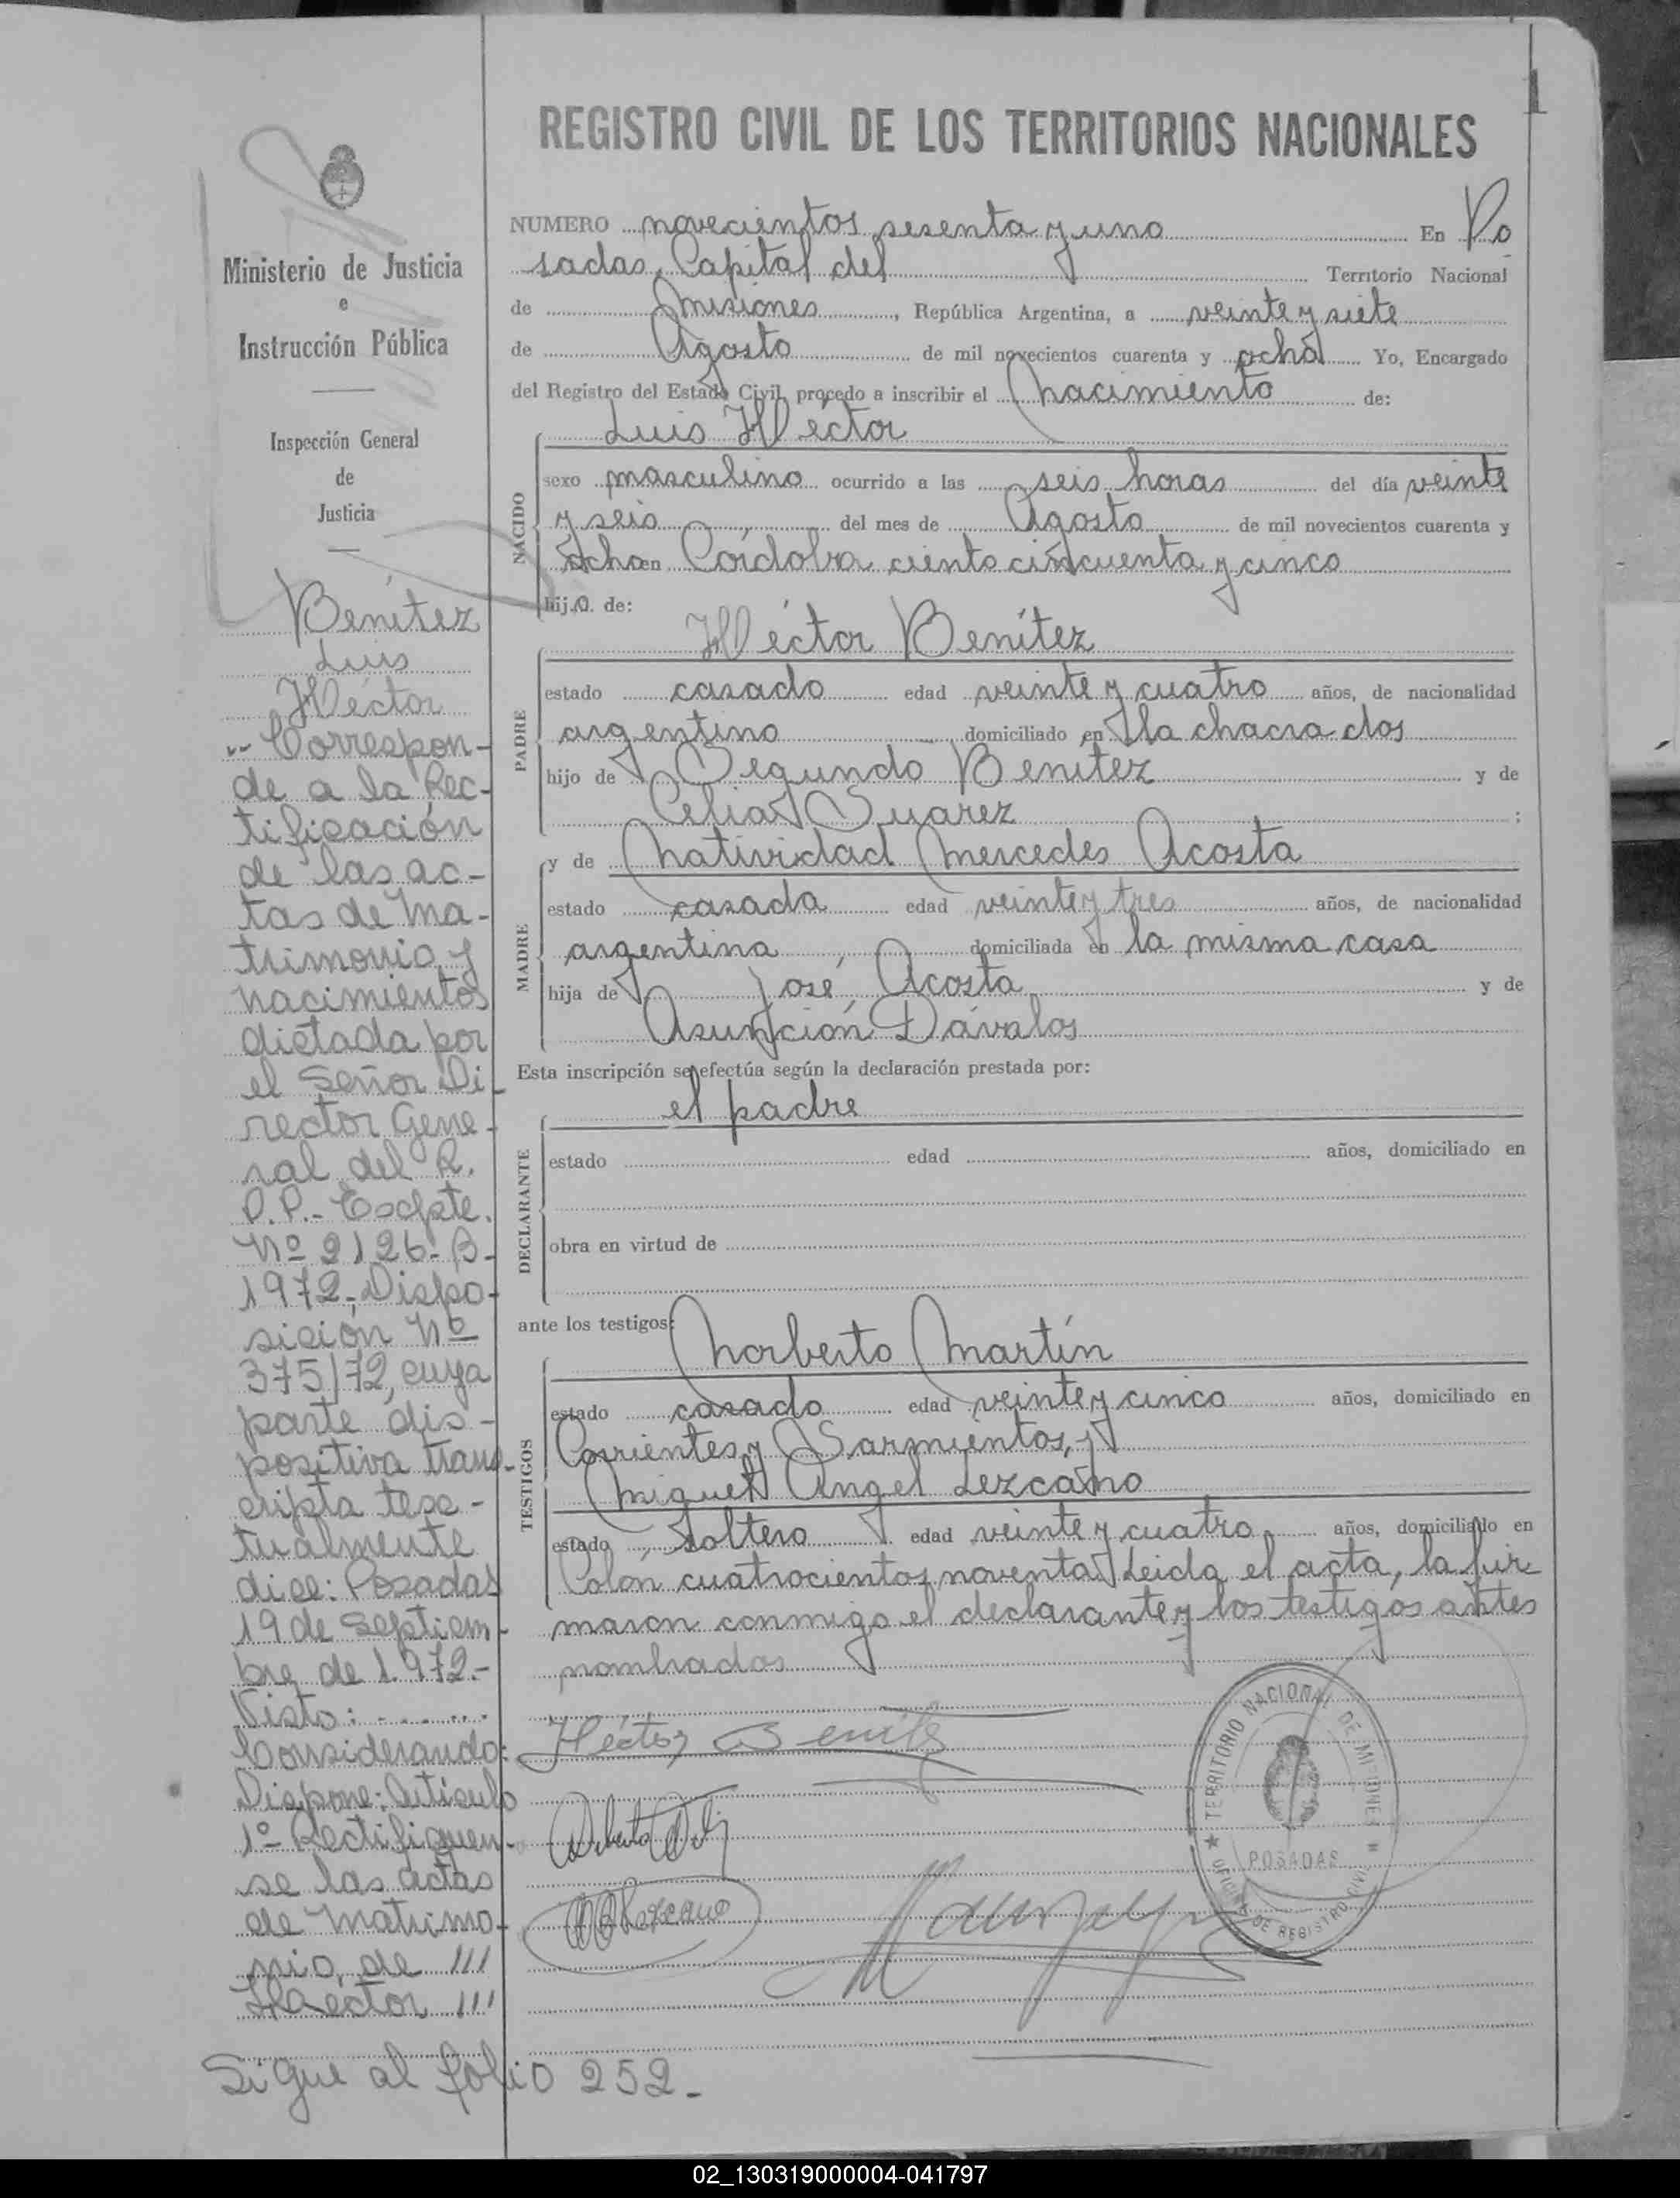 1
REGISTRO CIVIL DE LOS TERRITORIOS NACIONALES
Ministerio de Justicia
e
Instrucción Pública
Inspección General
de
Justicia
NUMERO novecientos sesenta y uno En Po
sadas, Capital del Territorio Nacional
de Misiones, República Argentina, a veinte y siete
de Agosto de mil novecientos cuarenta y ocho Yo, Encargado
del Registro del Estado Civil, procedo a inscribir el Nacimiento de:
NACIDO
Luis Héctor
sexo masculino ocurrido a las seis horas del día veinte
y seis del mes de Agosto de mil novecientos cuarenta y
ocho en Córdoba ciento cincuenta y cinco
hijo de:
PADRE
Héctor Benítez
estado casado edad veinte y cuatro años, de nacionalidad
argentino domiciliado en la chacra dos
hijo de Segundo Benitez y de
Celia Suarez ;
MADRE
y de Natividad Mercedes Acosta
estado casada edad veinte y tres años, de nacionalidad
argentina domiciliada en la misma casa
hija de José Acosta y de
Asunción Dávalos
Esta inscripción se efectúa según la declaración prestada por:
DECLARANTE
el padre
estado edad años, domiciliado en
obra en virtud de
ante los testigos:
TESTIGOS
Norberto Martín
estado casado edad veinte y cinco años, domiciliado en
Corrientes y Sarmientos, y
Miguel Angel Lezcano
estado soltero edad veinte y cuatro años, domiciliado en
Colón cuatrocientos noventa. Leida el acta, la fir
maron conmigo el declarante y los testigos antes
nombrados
Héctor Benitez
Lezcano
TERRITORIO NACIONAL DE MISIONES
POSADAS
OFICINA DE REGISTRO CIVIL
Benítez
Luis
Héctor
-- Correspon-
de a la Rec-
tificación
de las ac-
tas de Ma-
trimonio y
nacimientos
dictada por
el Señor Di-
rector Gene-
ral del R.
P.P.- Escpte.
Nº 2126-B-
1972-Dispo-
sición Nº
375/72, cuya
parte dis-
positiva trans-
cripta tex-
tualmente
dice: Posadas
19 de Septiem-
bre de 1.972.-
Visto: ......
Considerando:
Dispone: Artículo
1º Rectifiquen-
se las actas
de Matrimo-
nio, de ///
Héctor ///
Sigue al folio 252-
02_130319000004-041797